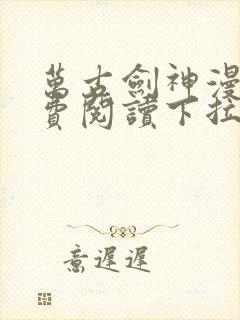 萬古劍神漫
費閱讀下拉
意遲遲